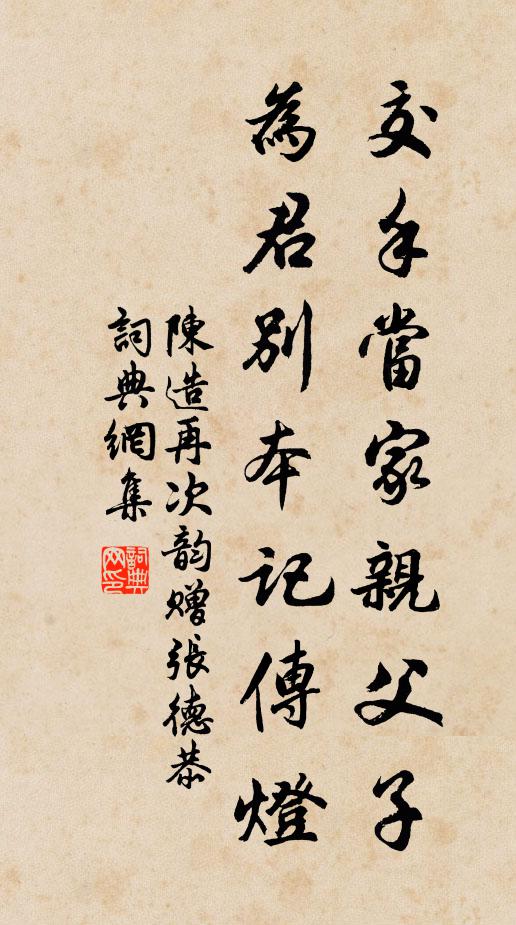 交手當家親父子
為君別本記傳燈
陳造再次韵贈張德恭
詞典網集
詞典网印